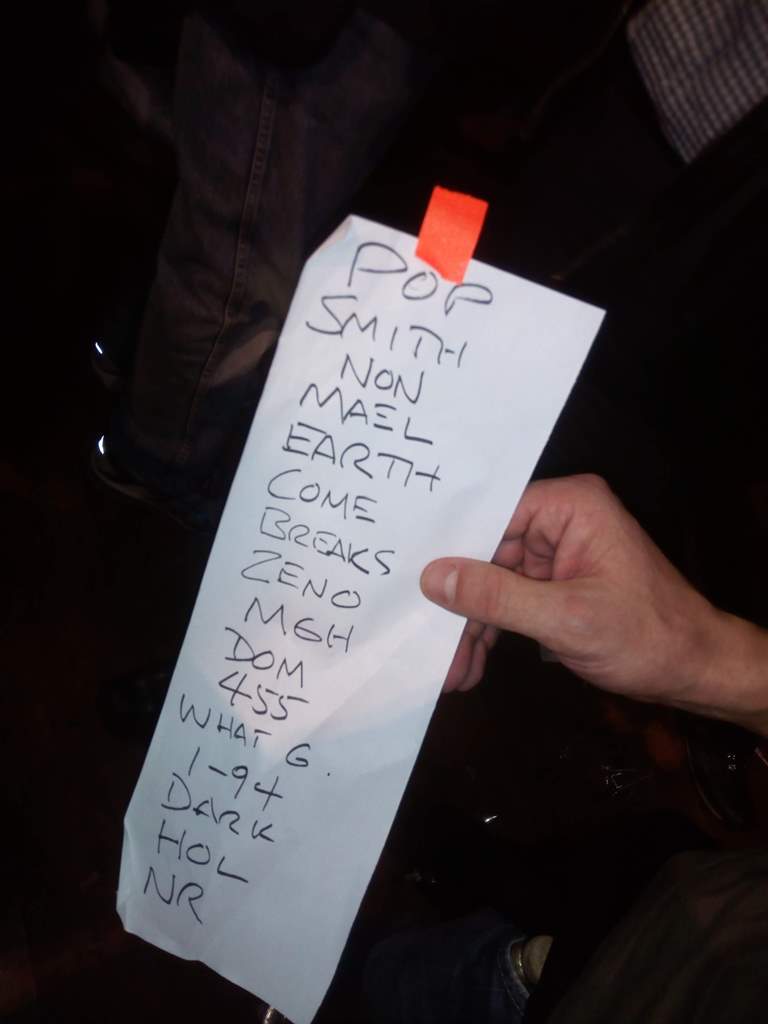 POP
SMITH
NON
MAEL
EARTH
COME
BREAKS
ZENO
MGH
DOM
455
WHAT G.
1-94
DARK
HOL
NR